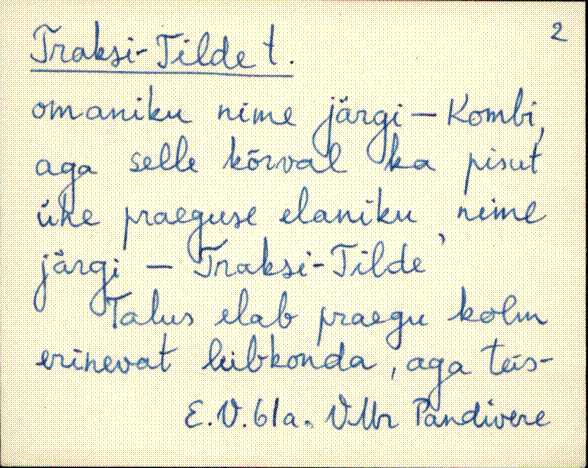 2
Traksi-Tilde t.
omaniku nime järgi – Kombi,
aga selle kõrval ka pisut
ühe praeguse elaniku nime
järgi – 'Traksi-Tilde'
Talus elab praegu kolm
erinevat leibkonda, aga teis-
E.V. 61a. VMr Pandivere